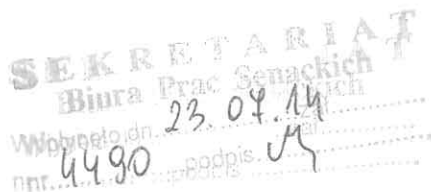 SEKRETARIAT
Biura Prac Senackich
Wpłynęło dn. 23.07.14
nr 4490 podpis